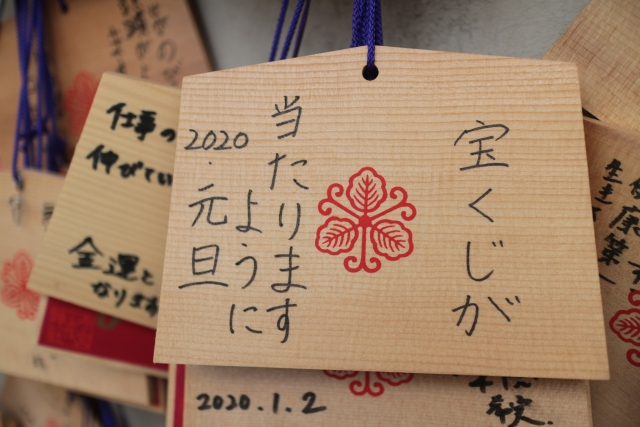 宝くじが
当たります
ように
2020.元旦
仕事の
伸がてい
金運と
なります
2020.1.2